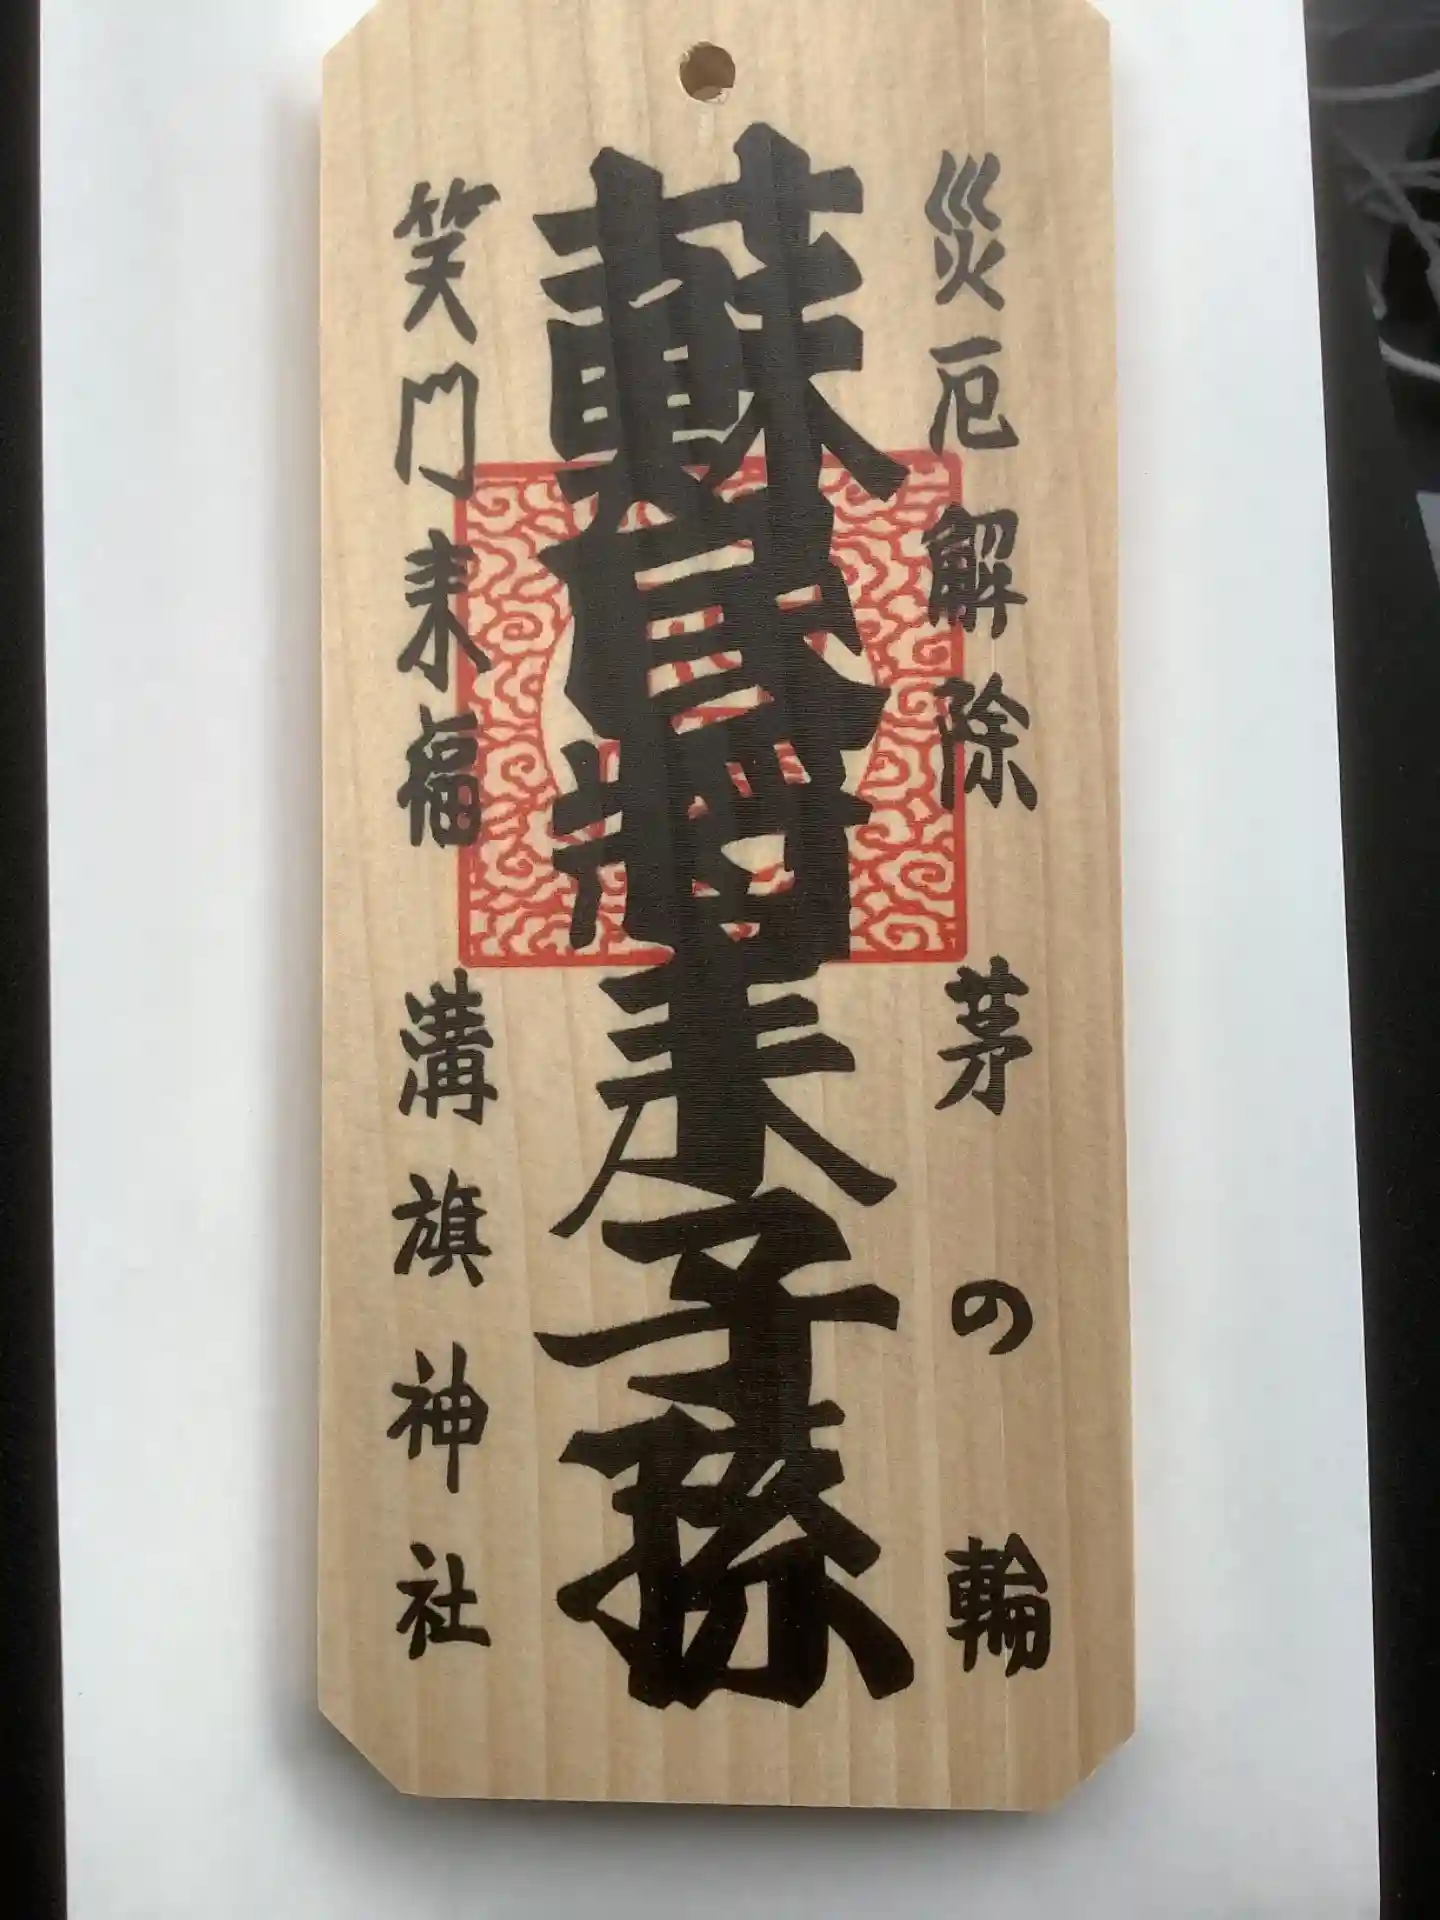 災厄解除 茅の輪
蘇民将来子孫
笑門来福 溝旗神社